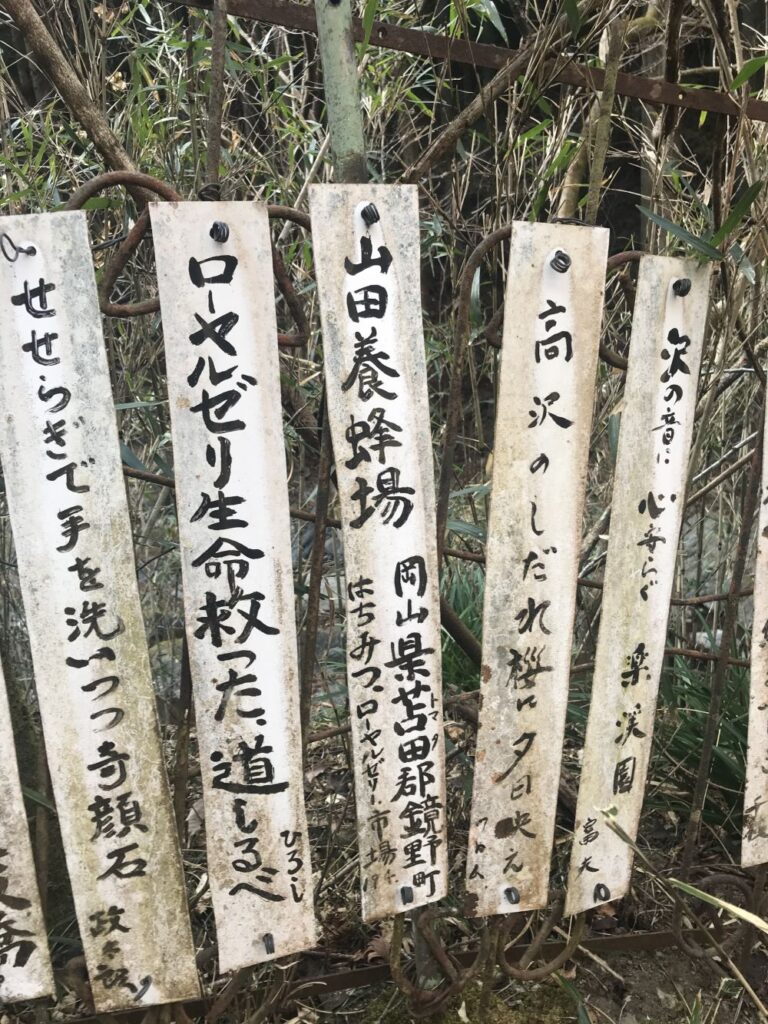 次の音に心安らぐ 楽渓園 富夫
高沢のしだれ桜に夕日映え
山田養蜂場
岡山県苫田郡鏡野町
トマタ
はちみつ、ローヤルゼリー市場
ローヤルゼリ生命救った、道しるべ
ひろし
せせらぎで手を洗いつつ奇顔石